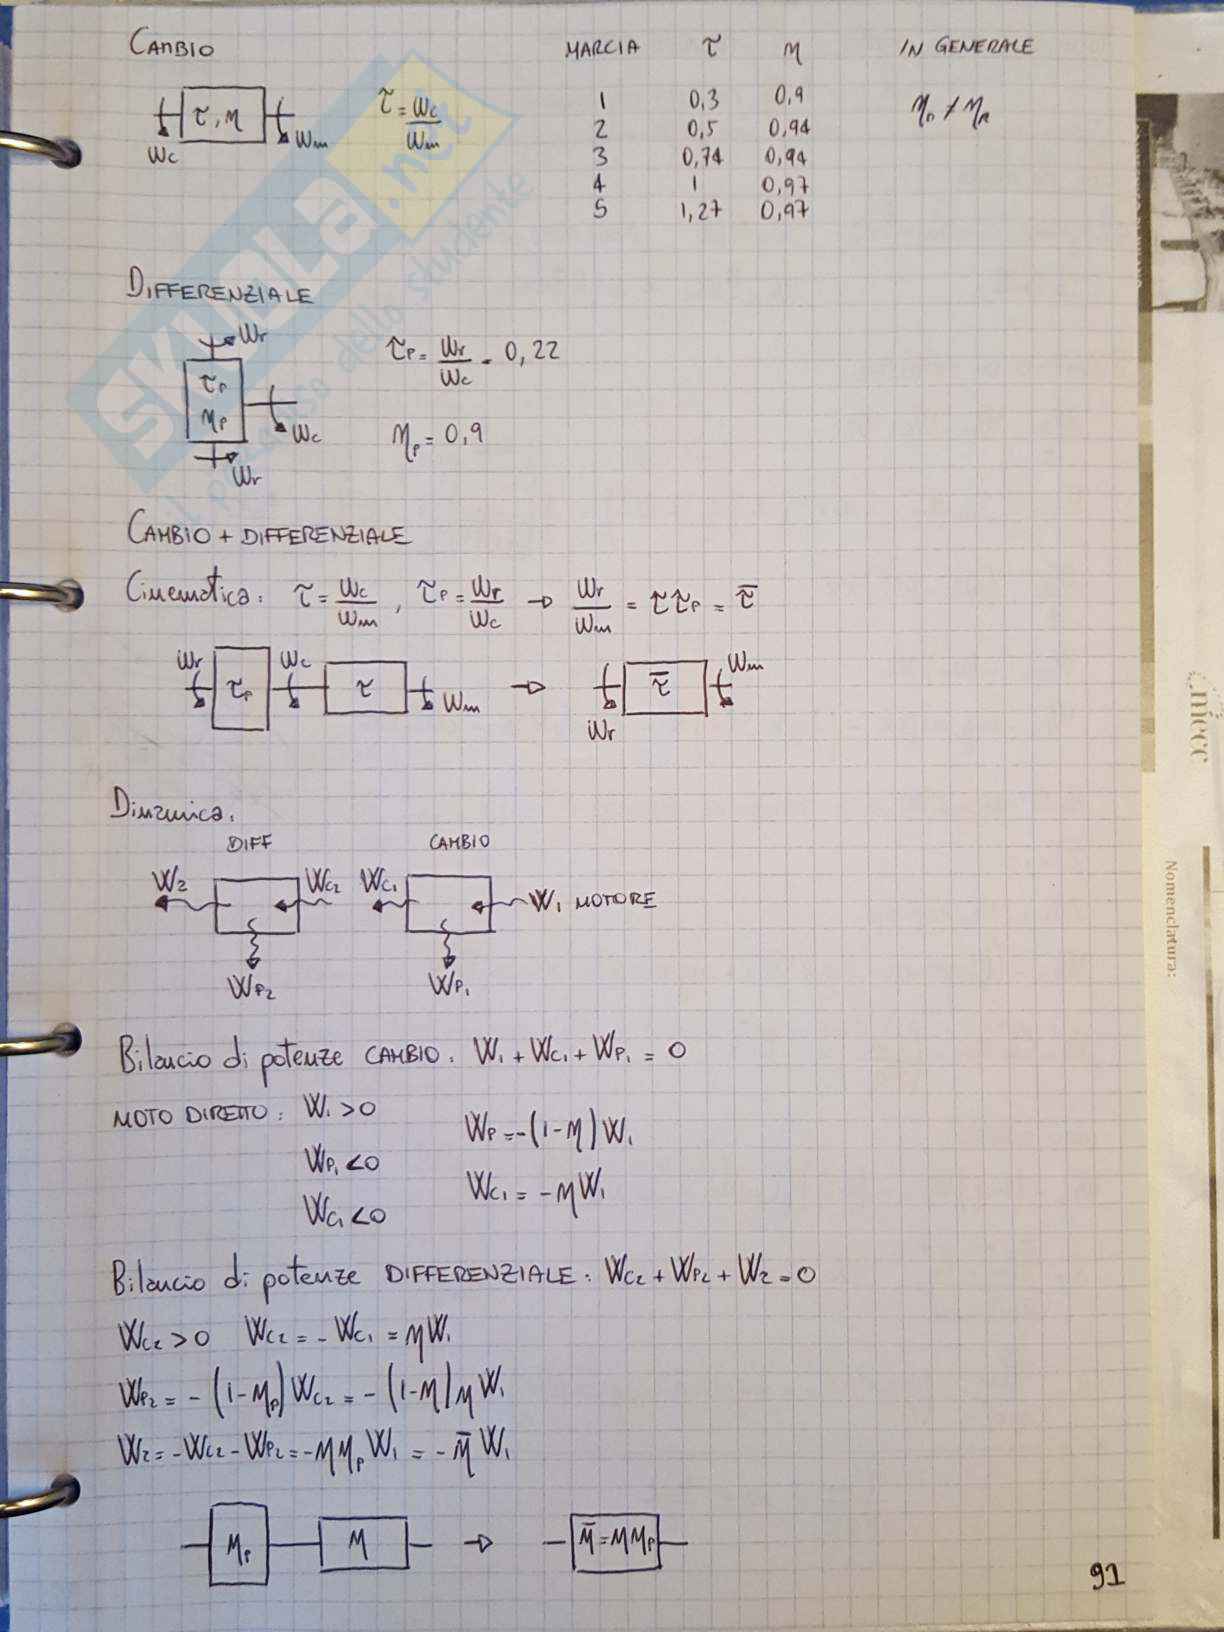 CAMBIO
MARCIA τ η IN GENERALE
τ, η
ωc
ωm
τ = ωc/ωm
1 0,3 0,9
2 0,5 0,94
3 0,74 0,94
4 1 0,97
5 1,27 0,97
ηD ≠ ηR
SKUOLA.net
dello studente
DIFFERENZIALE
ωr
τp
ηp
ωc
ωr
τp = ωr/ωc = 0,22
ηp = 0,9
CAMBIO + DIFFERENZIALE
Cinematica: τ = ωc/ωm , τp = ωr/ωc → ωr/ωm = τ τp = τ̄
ωr τp ωc τ ωm → ωr τ̄ ωm
Dinamica:
DIFF CAMBIO
W2 Wc2 Wc1 W1 MOTORE
Wp2 Wp1
Bilancio di potenze CAMBIO: W1 + Wc1 + Wp1 = 0
MOTO DIRETTO: W1 > 0
Wp1 < 0
Wc1 < 0
Wp = -(1-η) W1
Wc1 = -η W1
Bilancio di potenze DIFFERENZIALE: Wc2 + Wp2 + W2 = 0
Wc2 > 0 Wc2 = - Wc1 = η W1
Wp2 = - (1-ηp) Wc2 = - (1-η) η W1
W2 = -Wc2 - Wp2 = -η ηp W1 = - η̄ W1
ηp η → η̄ = η ηp
91
Nomenclatura: